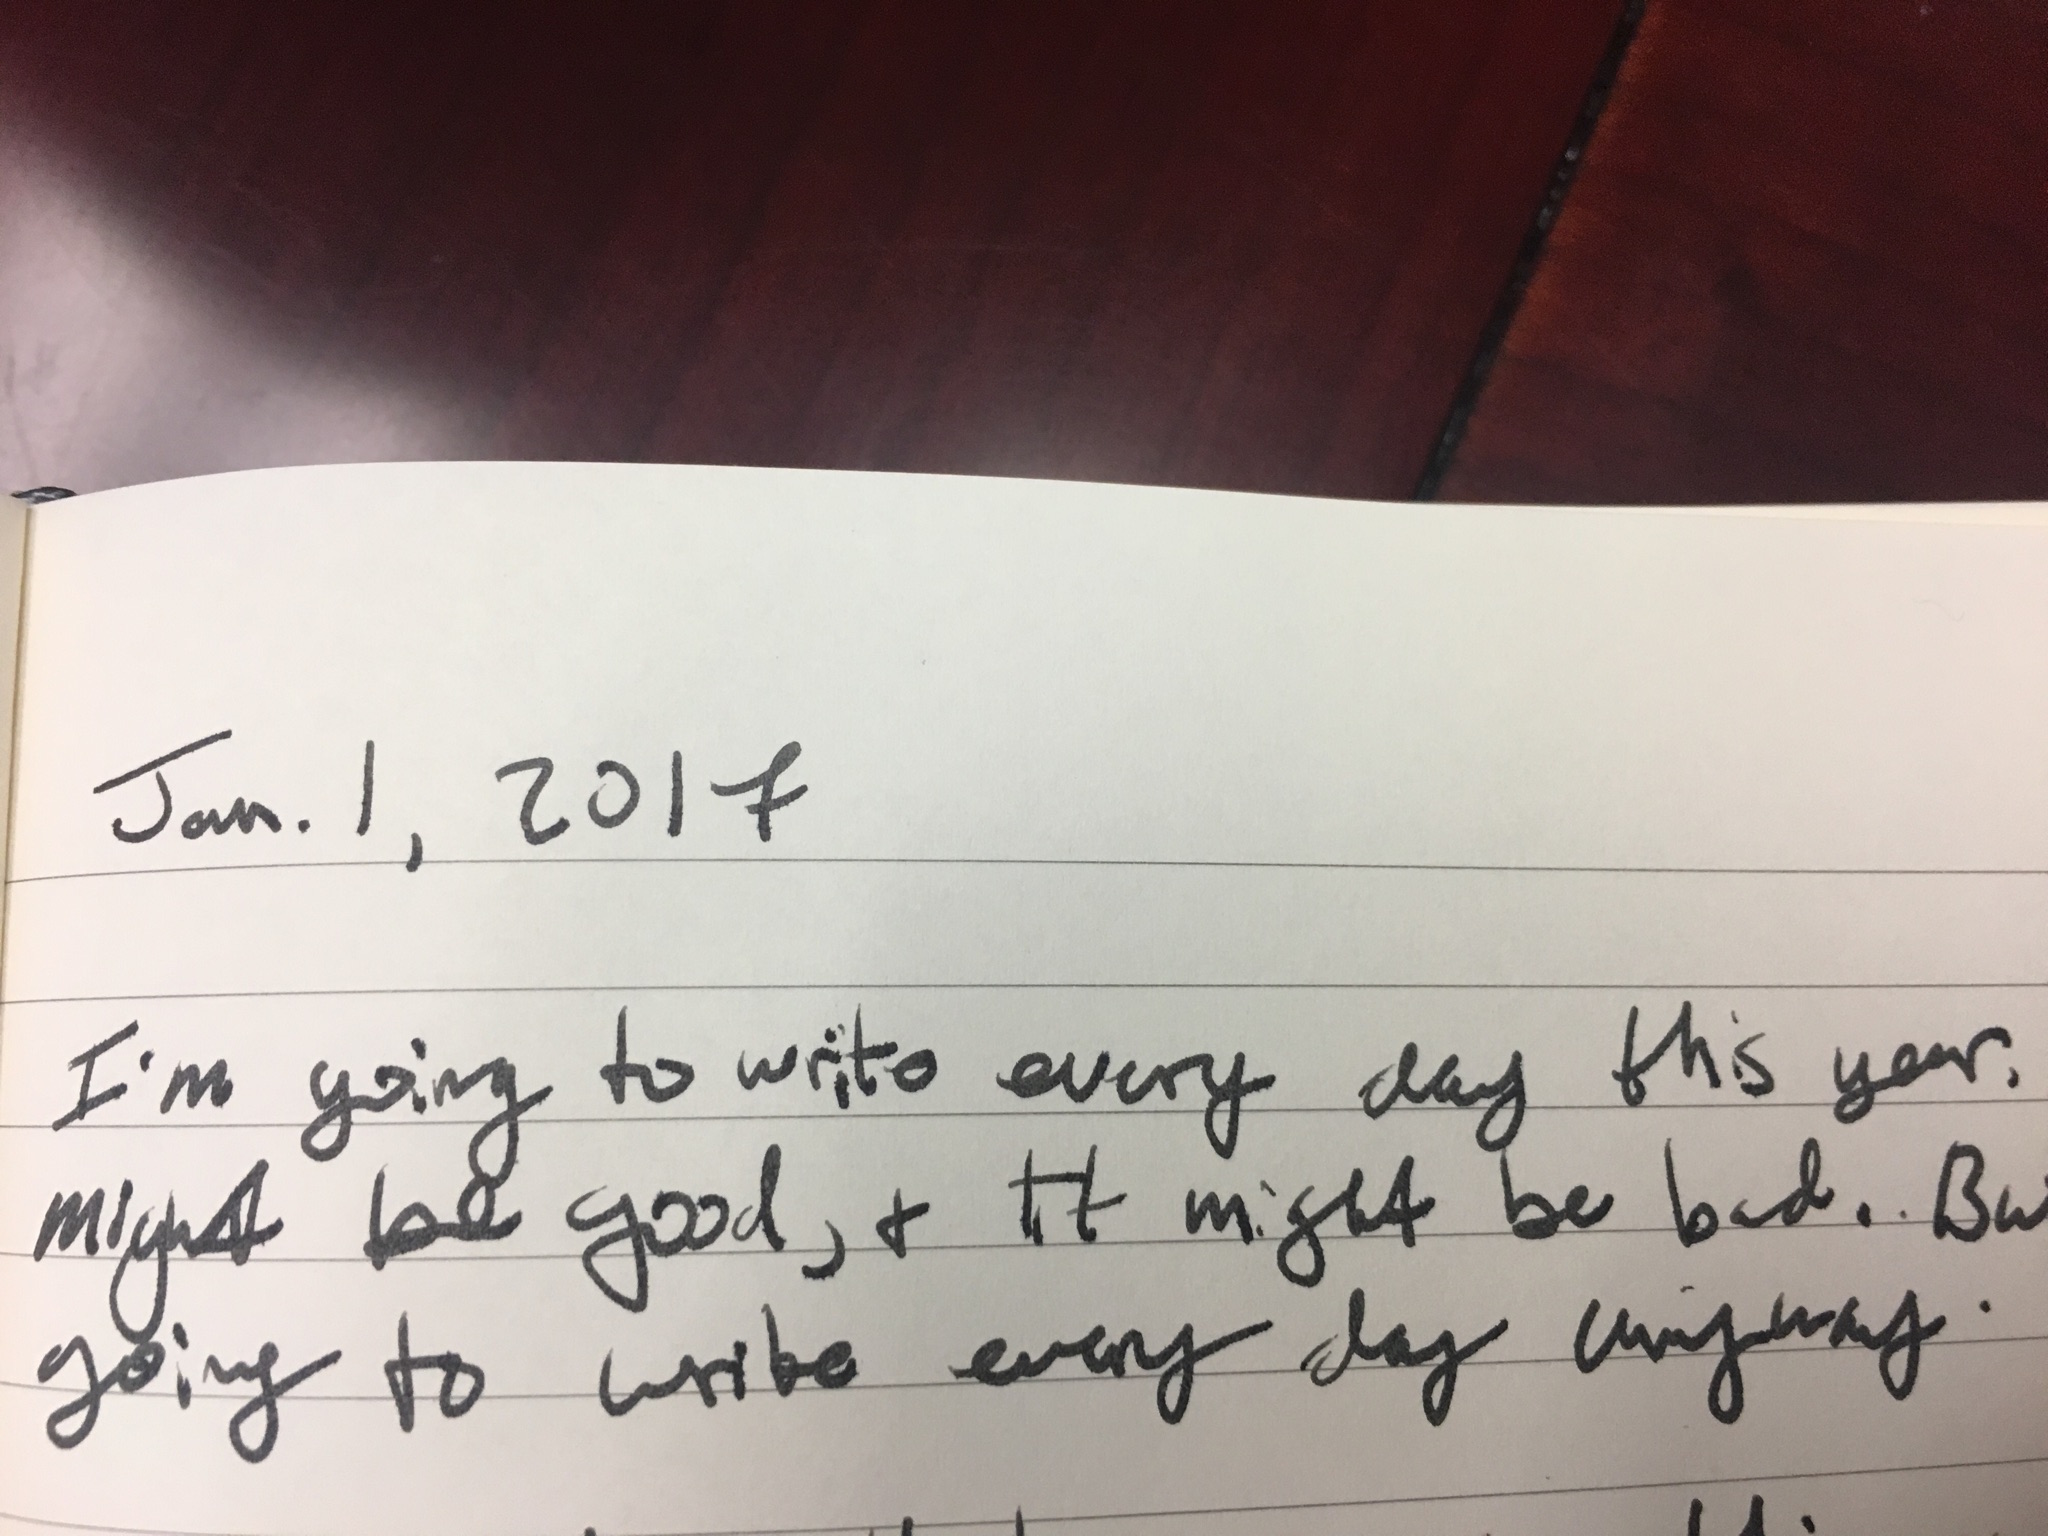 Jan. 1, 2017
I'm going to write every day this year.
might be good, & It might be bad. Bu
going to write every day anyway.